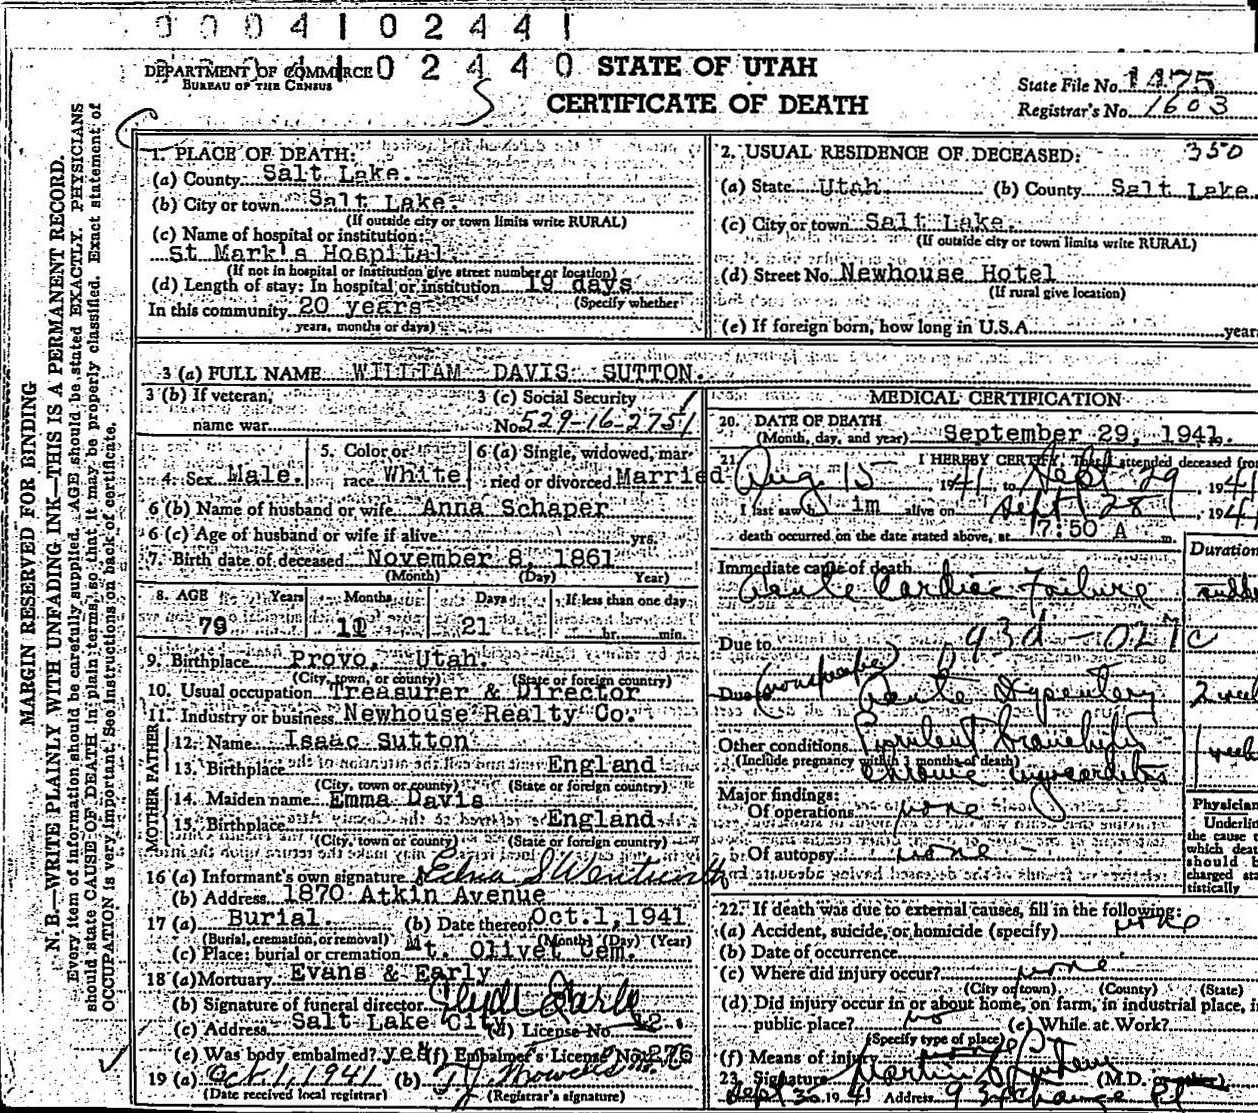 0 0 0 4 1 0 2 4 4 1
0 2 4 4 0
DEPARTMENT OF COMMERCE
BUREAU OF THE CENSUS
STATE OF UTAH
CERTIFICATE OF DEATH
State File No. 1475
Registrar's No. 1603
MARGIN RESERVED FOR BINDING
N. B.—WRITE PLAINLY WITH UNFADING INK—THIS IS A PERMANENT RECORD.
Every item of information should be carefully supplied. AGE should be stated EXACTLY. PHYSICIANS
should state CAUSE OF DEATH in plain terms, so that it may be properly classified. Exact statement of
OCCUPATION is very important. See instructions on back of certificate.
1. PLACE OF DEATH:
(a) County Salt Lake.
(b) City or town Salt Lake.
(If outside city or town limits write RURAL)
(c) Name of hospital or institution:
St Mark's Hospital
(If not in hospital or institution give street number or location)
(d) Length of stay: In hospital or institution 19 days
(Specify whether
In this community 20 years
years, months or days)
2. USUAL RESIDENCE OF DECEASED: 350
(a) State Utah (b) County Salt Lake.
(c) City or town Salt Lake.
(If outside city or town limits write RURAL)
(d) Street No. Newhouse Hotel
(If rural give location)
(e) If foreign born, how long in U.S.A. year
3 (a) FULL NAME WILLIAM DAVIS SUTTON.
3 (b) If veteran,
name war
3 (c) Social Security
No. 529-16-2751
4. Sex Male.
5. Color or
race White
6 (a) Single, widowed, mar-
ried or divorced Married
6 (b) Name of husband or wife Anna Schaper
6 (c) Age of husband or wife if alive yrs.
7. Birth date of deceased November 8, 1861
(Month) (Day) Year)
8. AGE Years Months Days If less than one day
79 10 21 hr. min.
9. Birthplace Provo, Utah.
(City, town, or county) (State or foreign country)
10. Usual occupation Treasurer & Director
11. Industry or business Newhouse Realty Co.
FATHER
12. Name Isaac Sutton
13. Birthplace England
(City, town or county) (State or foreign country)
MOTHER
14. Maiden name Emma Davis
15. Birthplace England
(City, town or county) (State or foreign country)
16 (a) Informant's own signature Edna S Wentworth
(b) Address 1870 Atkin Avenue
17 (a) Burial. (b) Date thereof Oct.1,1941
(Burial, cremation, or removal) (Month) (Day) (Year)
(c) Place: burial or cremation Mt. Olivet Cem.
18 (a) Mortuary Evans & Early
(b) Signature of funeral director
(c) Address Salt Lake City (d) License No. 12.
(e) Was body embalmed? yes (f) Embalmer's License No. 276
19 (a) Oct. 1, 1941 (b)
(Date received local registrar) (Registrar's signature)
MEDICAL CERTIFICATION
20. DATE OF DEATH
(Month, day, and year) September 29, 1941.
21. I HEREBY CERTIFY, That I attended deceased from
Aug 15 1941, to Sept 29, 1941
I last saw h im alive on Sept 28, 194
death occurred on the date stated above, at 7:50 A m.
Duration
Immediate cause of death
Acute Cardiac Failure
Due to 93d - 027c
Due Acute Dysentery 2
Other conditions Purulent bronchitis 1
(Include pregnancy within 3 months of death)
Chronic myocarditis
Major findings:
Of operations none
Of autopsy none
Physician
Underlin
the cause
which deat
should b
charged sta
tistically
22. If death was due to external causes, fill in the following:
(a) Accident, suicide, or homicide (specify) none
(b) Date of occurrence
(c) Where did injury occur? none
(City or town) (County) (State)
(d) Did injury occur in or about home, on farm, in industrial place, i
public place? no (e) While at Work?
(Specify type of place)
(f) Means of injury
23. Signature Martin (M.D.
Sept 30 1941 Address